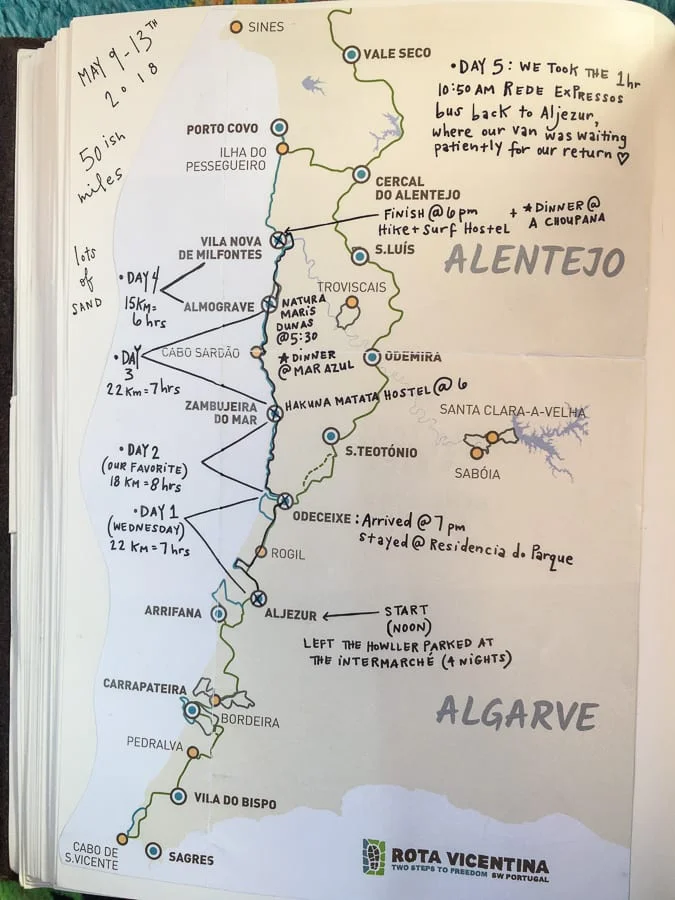 MAY 9-13TH
2018
50ish
miles
lots
of
SAND
SINES
VALE SECO
• DAY 5: WE TOOK THE 1hr
10:50 AM REDE EXPRESSOS
bus back to Aljezur,
where our van was waiting
patiently for our return ♡
PORTO COVO
ILHA DO
PESSEGUEIRO
CERCAL
DO ALENTEJO
FINISH @ 6pm
Hike + Surf Hostel
+ ★ DINNER @
A CHOUPANA
VILA NOVA
DE MILFONTES
S.LUÍS
ALENTEJO
• DAY 4
15KM =
6 hrs
ALMOGRAVE
NATURA
MARIS
DUNAS
@ 5:30
★ DINNER
@ MAR AZUL
TROVISCAIS
• DAY
3
22 KM = 7hrs
CABO SARDÃO
ODEMIRA
ZAMBUJEIRA
DO MAR
HAKUNA MATATA HOSTEL @ 6
SANTA CLARA-A-VELHA
SABÓIA
S.TEOTÓNIO
• DAY 2
(OUR FAVORITE)
18 KM = 8hrs
• DAY 1
(WEDNESDAY)
22 KM = 7hrs
ODECEIXE : Arrived @ 7 pm
Stayed @ Residencia do Parque
ROGIL
ARRIFANA
ALJEZUR
START
(NOON)
LEFT THE HOWLLER PARKED AT
THE INTERMARCHÉ (4 NIGHTS)
CARRAPATEIRA
BORDEIRA
ALGARVE
PEDRALVA
VILA DO BISPO
CABO DE
S.VICENTE
SAGRES
ROTA VICENTINA
TWO STEPS TO FREEDOM SW PORTUGAL